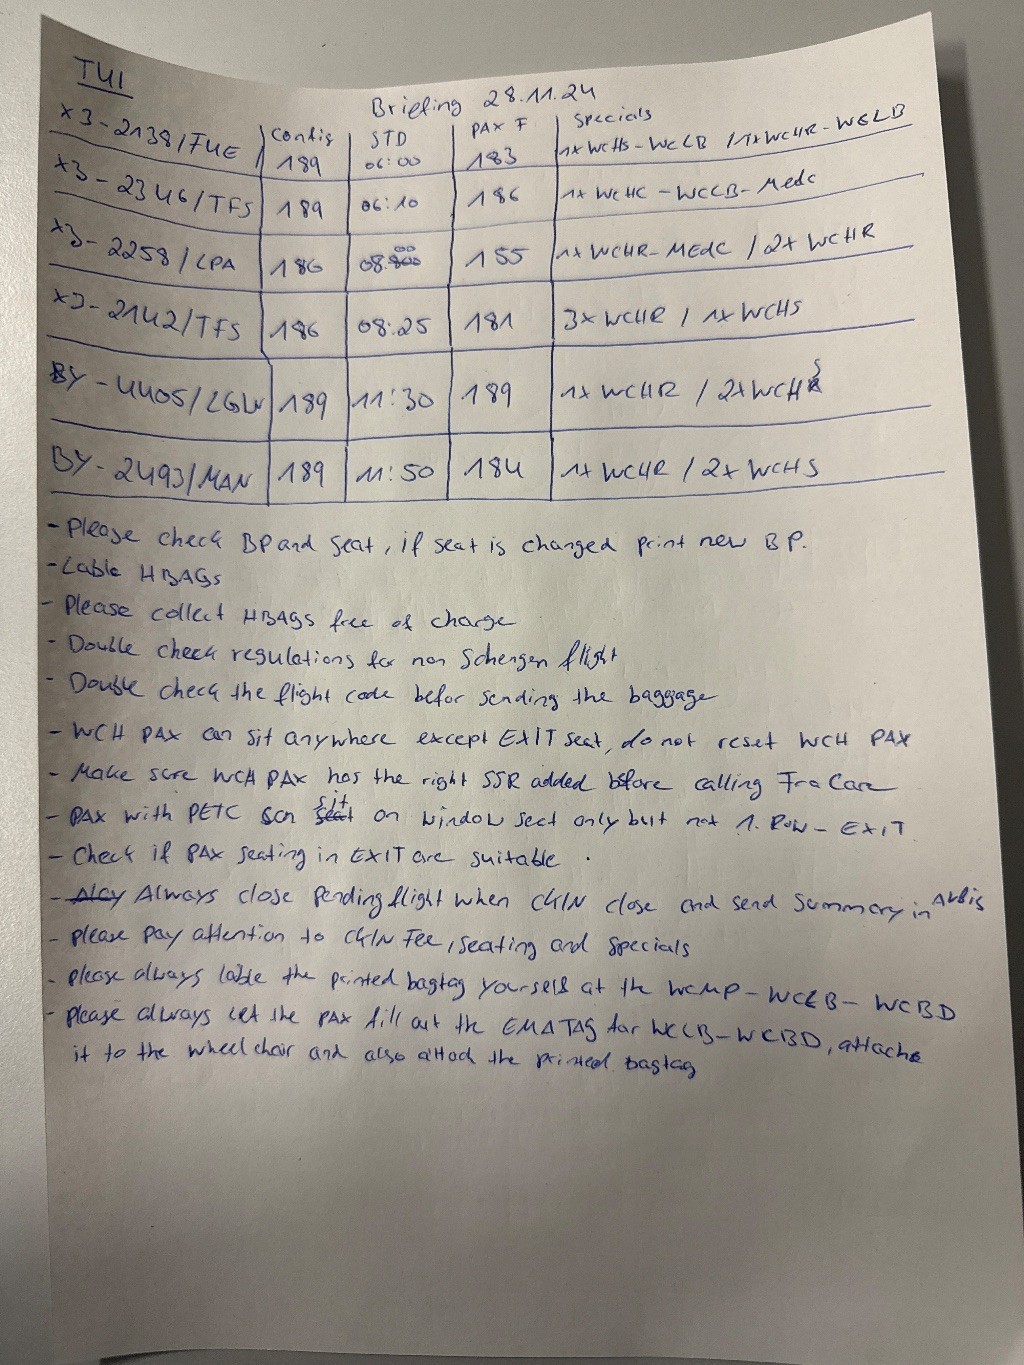 TUI
Briefing 28.11.24
Config STD PAX F Specials
X3-2138/FUE 189 06:00 183 1x WCHS-WCLB / 1x WCHR-WCLB
X3-2346/TFS 189 06:10 186 1x WCHC-WCLB-Medc
X3-2258/LPA 186 08:00 155 1x WCHR-MEDC / 2x WCHR
X3-2142/TFS 186 08:25 181 3x WCHR / 1x WCHS
BY-4405/LGW 189 11:30 189 1x WCHR / 2x WCHS
BY-2493/MAN 189 11:50 184 1x WCHR / 2x WCHS
- Please check BP and seat, if seat is changed print new BP.
- Lable HBAGs
- Please collect HBAGs free of charge
- Double check regulations for non Schengen flight
- Double check the flight code befor sending the baggage
- WCH PAX can sit anywhere except EXIT seat, do not reset WCH PAX
- Make sure WCH PAX has the right SSR added before calling FraCare
- PAX with PETC can sit on window seat only but not 1. Row - EXIT
- Check if PAX seating in EXIT are suitable.
- Always close pending flight when CKIN close and send Summary in
- Please pay attention to CKIN Fee, seating and specials
- Please always lable the printed bagtag yourself at the WCMP-WCLB-WCBD
- Please always let the PAX fill out the EMATAG for WCLB-WCBD, attache
it to the wheelchair and also attach the printed bagtag